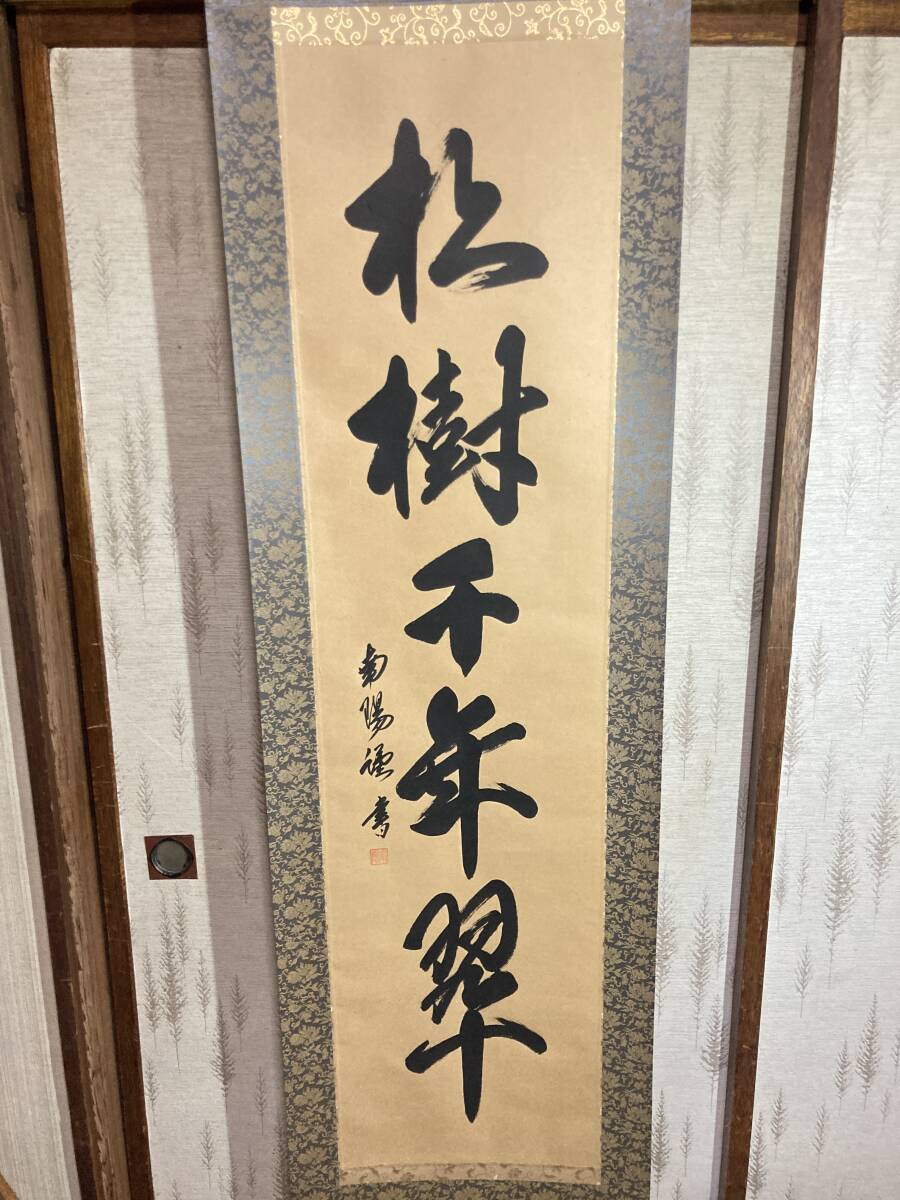 松樹千年翠
南陽 書